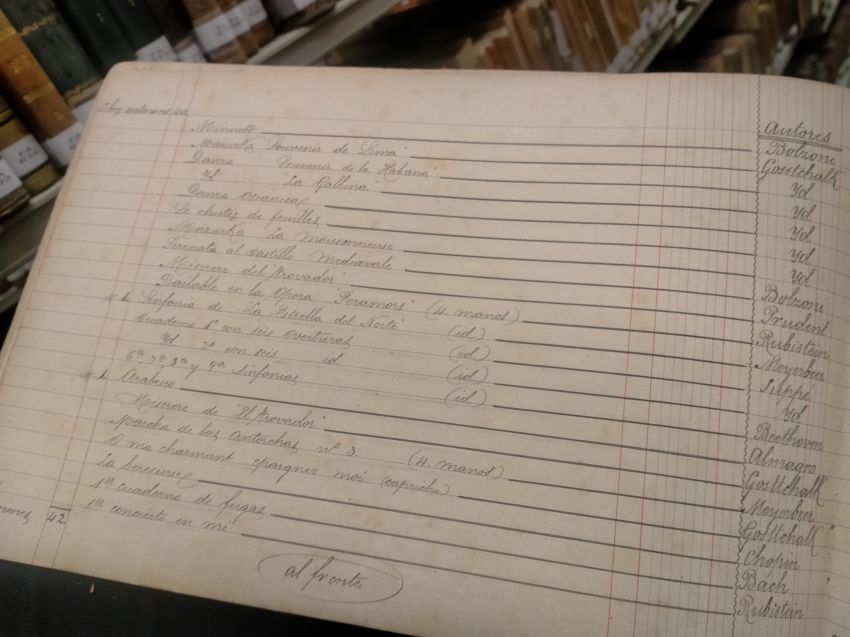 Autores
Minueto Bolzoni
Mazurka "Souvenir de Lima" Gosstchalk
Danza "Souvenir de la Habana" Yd
Yd "La Gallina" Yd
Danza osianicas Yd
Le chutes de feuilles Yd
Mazurka La moissonneuse Yd
Serenata al castillo mediævale Bolzoni
Miserere del Trovador Prudent
Bailable en la Opera "Feramors" (4 manos) Rubistein
Sinfonia de "La Estrella del Norte" (id) Meyerbeer
Cuaderno 1º con seis overturas (id) Suppé
Yd 2º con seis id (id) Yd
6ª, 7ª, 8ª y 9ª sinfonias (id) Beethoven
Arabesco Almagro
Miserere de "El Trovador" Gosttchalk
Marcha de las antorchas nº 3 (4 manos) Meyerbeer
O ma charmant epargnez moi (capricho) Gosttchalk
La berceuse Chopin
1er cuaderno de fugas Bach
42 1er concierto en mi Rubistein
al frente